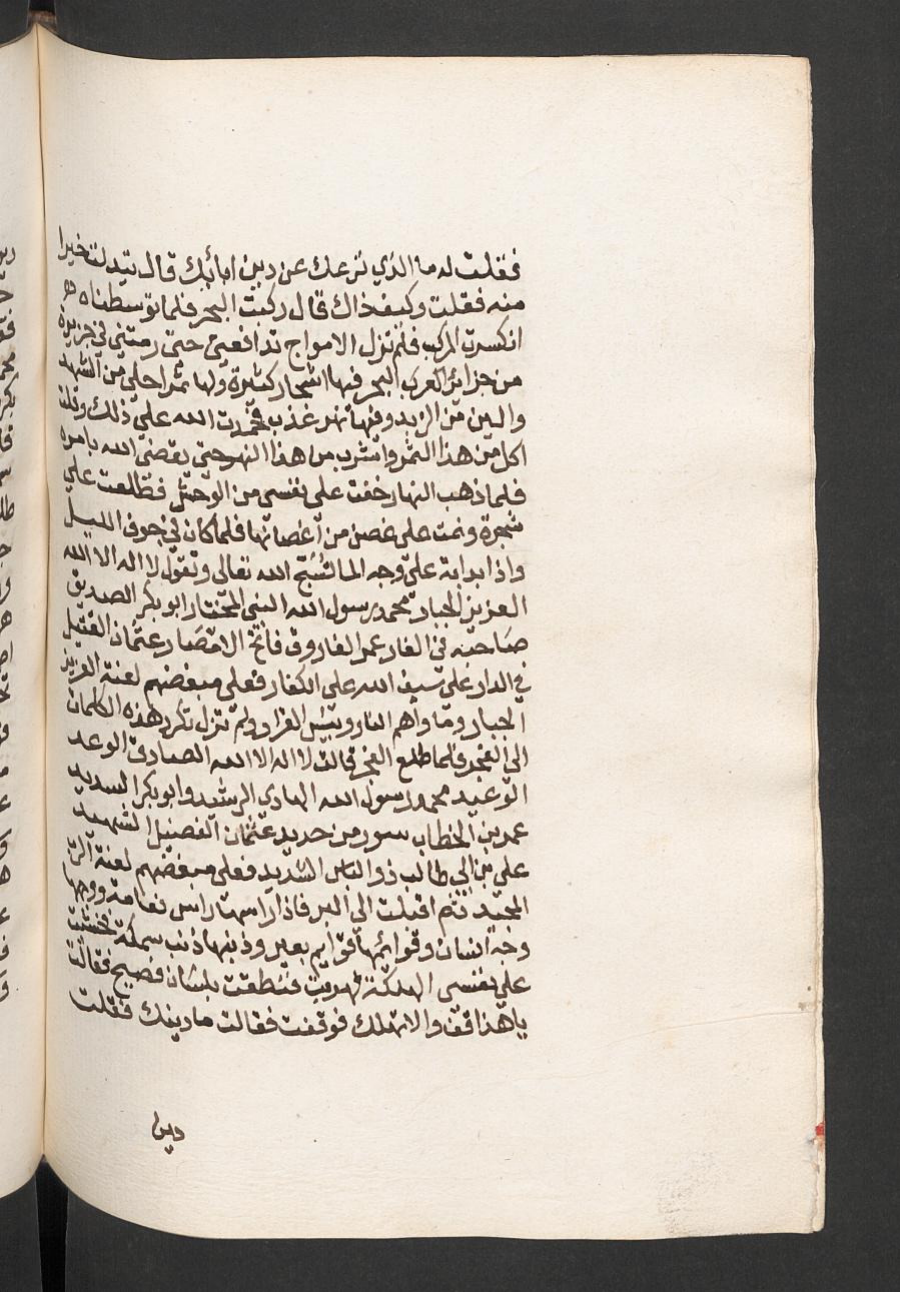 فقلت له ما الذي نزعك عن دين ابائك قال تبدلت خيرا
منه فقلت وكيف ذاك قال ركبت البحر فلما توسطناه
انكسرت المركب فلم تزل الامواج تدافعني حتى رمتني في جزيرة
من جزائر البحر فيها اشجار كثيرة ولها ثمر احلى من الشهد
والين من الزبد وفيها نهر عذب فحمدت الله على ذلك وقلت
اكل من هذا الثمر واشرب من هذا النهر حتى يقضي الله بامره
فلما ذهب النهار خفت على نفسي من الوحش فطلعت على
شجرة ونمت على غصن من اغصانها فلما كان في جوف الليل
واذا بدابة على وجه الما تسبح الله تعالى وتقول لا اله الا الله
العزيز الجبار محمد رسول الله النبي المختار ابو بكر الصديق
صاحبه في الغار عمر الفاروق فاتح الامصار عثمان القتيل
في الدار علي سيف الله على الكفار فعلى مبغضهم لعنة العزيز
الجبار وماواهم النار وبئس القرار ولم تزل تكرر هذه الكلمات
الى الفجر فلما طلع الفجر قالت لا اله الا الله الصادق الوعد
الوعيد محمد رسول الله الهادي الرشيد وابو بكر السديد
عمر بن الخطاب سور من حديد عثمان الفضيل الشهيد
علي بن ابي طالب ذو الباس الشديد فعلى مبغضهم لعنة الرب
المجيد ثم اقبلت الى البر فاذا راسها راس نعامة ووجهها
وجه انسان وقوائمها قوايم بعير وذنبها ذنب سمكة فخشيت
على نفسي الهلكة فهربت فنطقت بلسان فصيح فقالت
يا هذا قف والا تهلك فوقفت فقالت ما دينك فقلت
دين